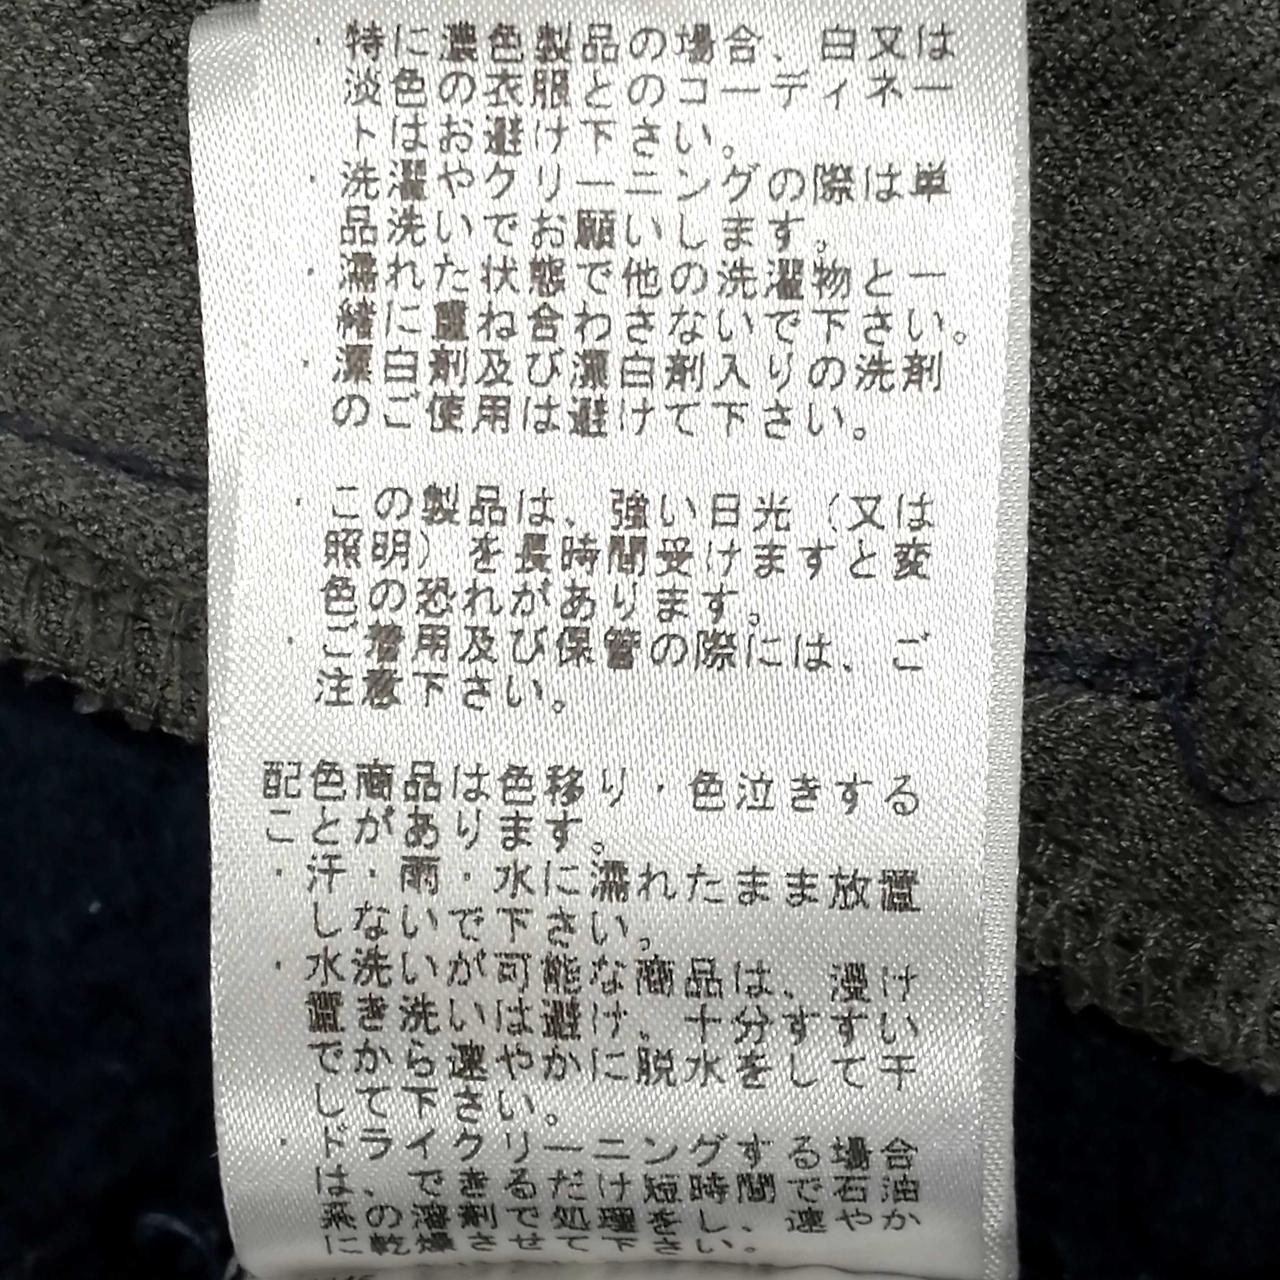 ・特に濃色製品の場合、白又は
淡色の衣服とのコーディネー
トはお避け下さい。
・洗濯やクリーニングの際は単
品洗いでお願いします。
・濡れた状態で他の洗濯物と一
緒に重ね合わさないで下さい。
・漂白剤及び漂白剤入りの洗剤
のご使用は避けて下さい。
・この製品は、強い日光（又は
照明）を長時間受けますと変
色の恐れがあります。
・ご着用及び保管の際には、ご
注意下さい。
配色商品は色移り・色泣きする
ことがあります。
・汗・雨・水に濡れたまま放置
しないで下さい。
・水洗いが可能な商品は、浸け
置き洗いは避け、十分すすい
でから速やかに脱水をして干
して下さい。
・ドライクリーニングする場合
は、できるだけ短時間で石油
系の溶剤で処理をし、速やか
に乾燥させて下さい。